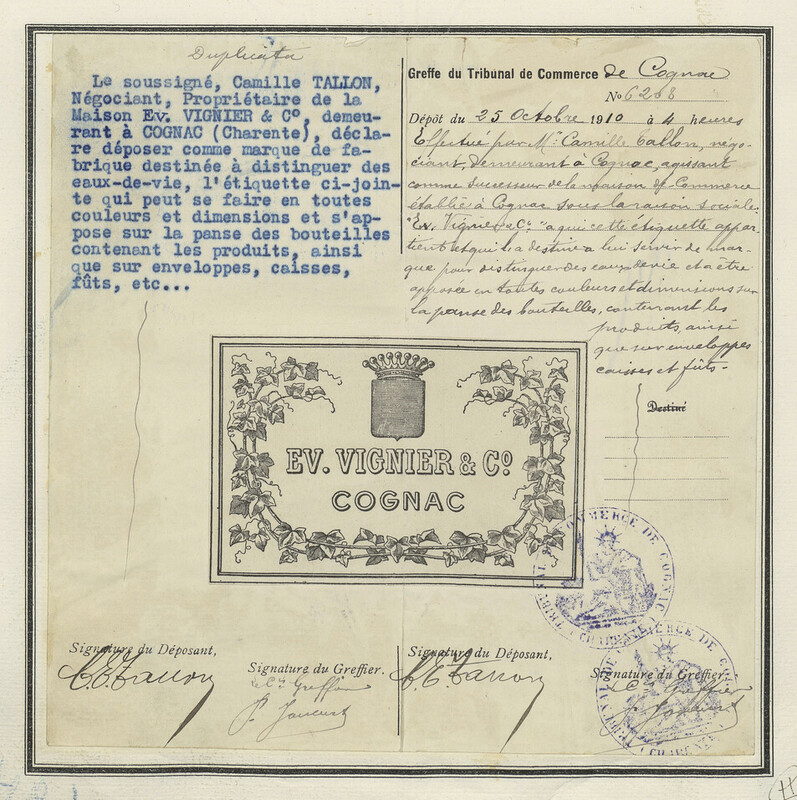 Duplicata
Le soussigné, Camille TALLON,
Négociant, Propriétaire de la
Maison Ev. VIGNIER & C°, demeu-
rant à COGNAC (Charente), décla-
re déposer comme marque de fa-
brique destinée à distinguer des
eaux-de-vie, l'étiquette ci-join-
te qui peut se faire en toutes
couleurs et dimensions et s'ap-
pose sur la panse des bouteilles
contenant les produits, ainsi
que sur enveloppes, caisses,
fûts, etc...
Greffe du Tribunal de Commerce de Cognac
No 6268
Dépôt du 25 Octobre 1910 à 4 heures
Effectué par Mr. Camille Tallon, négo-
ciant, demeurant à Cognac, agissant
comme successeur de la maison de Commerce
établie à Cognac sous la raison sociale:
"Ev. Vignier & Co." à qui cette étiquette appar-
tient et qui l'a destinée à lui servir de mar-
que pour distinguer des eaux de vie et à être
apposée en toutes couleurs et dimensions sur
la panse des bouteilles, contenant les
produits, ainsi
que sur enveloppes
caisses et fûts.-
Destiné
EV. VIGNIER & Co.
COGNAC
TRIBUNAL DE COMMERCE DE COGNAC
(CHARENTE)
Signature du Déposant,
C. E. Tallon
Signature du Greffier.
Cis Greffier
Signature du Déposant,
C. E. Tallon
Signature du Greffier.
Cis Greffier
TRIBUNAL DE COMMERCE DE
(CHARENTE)